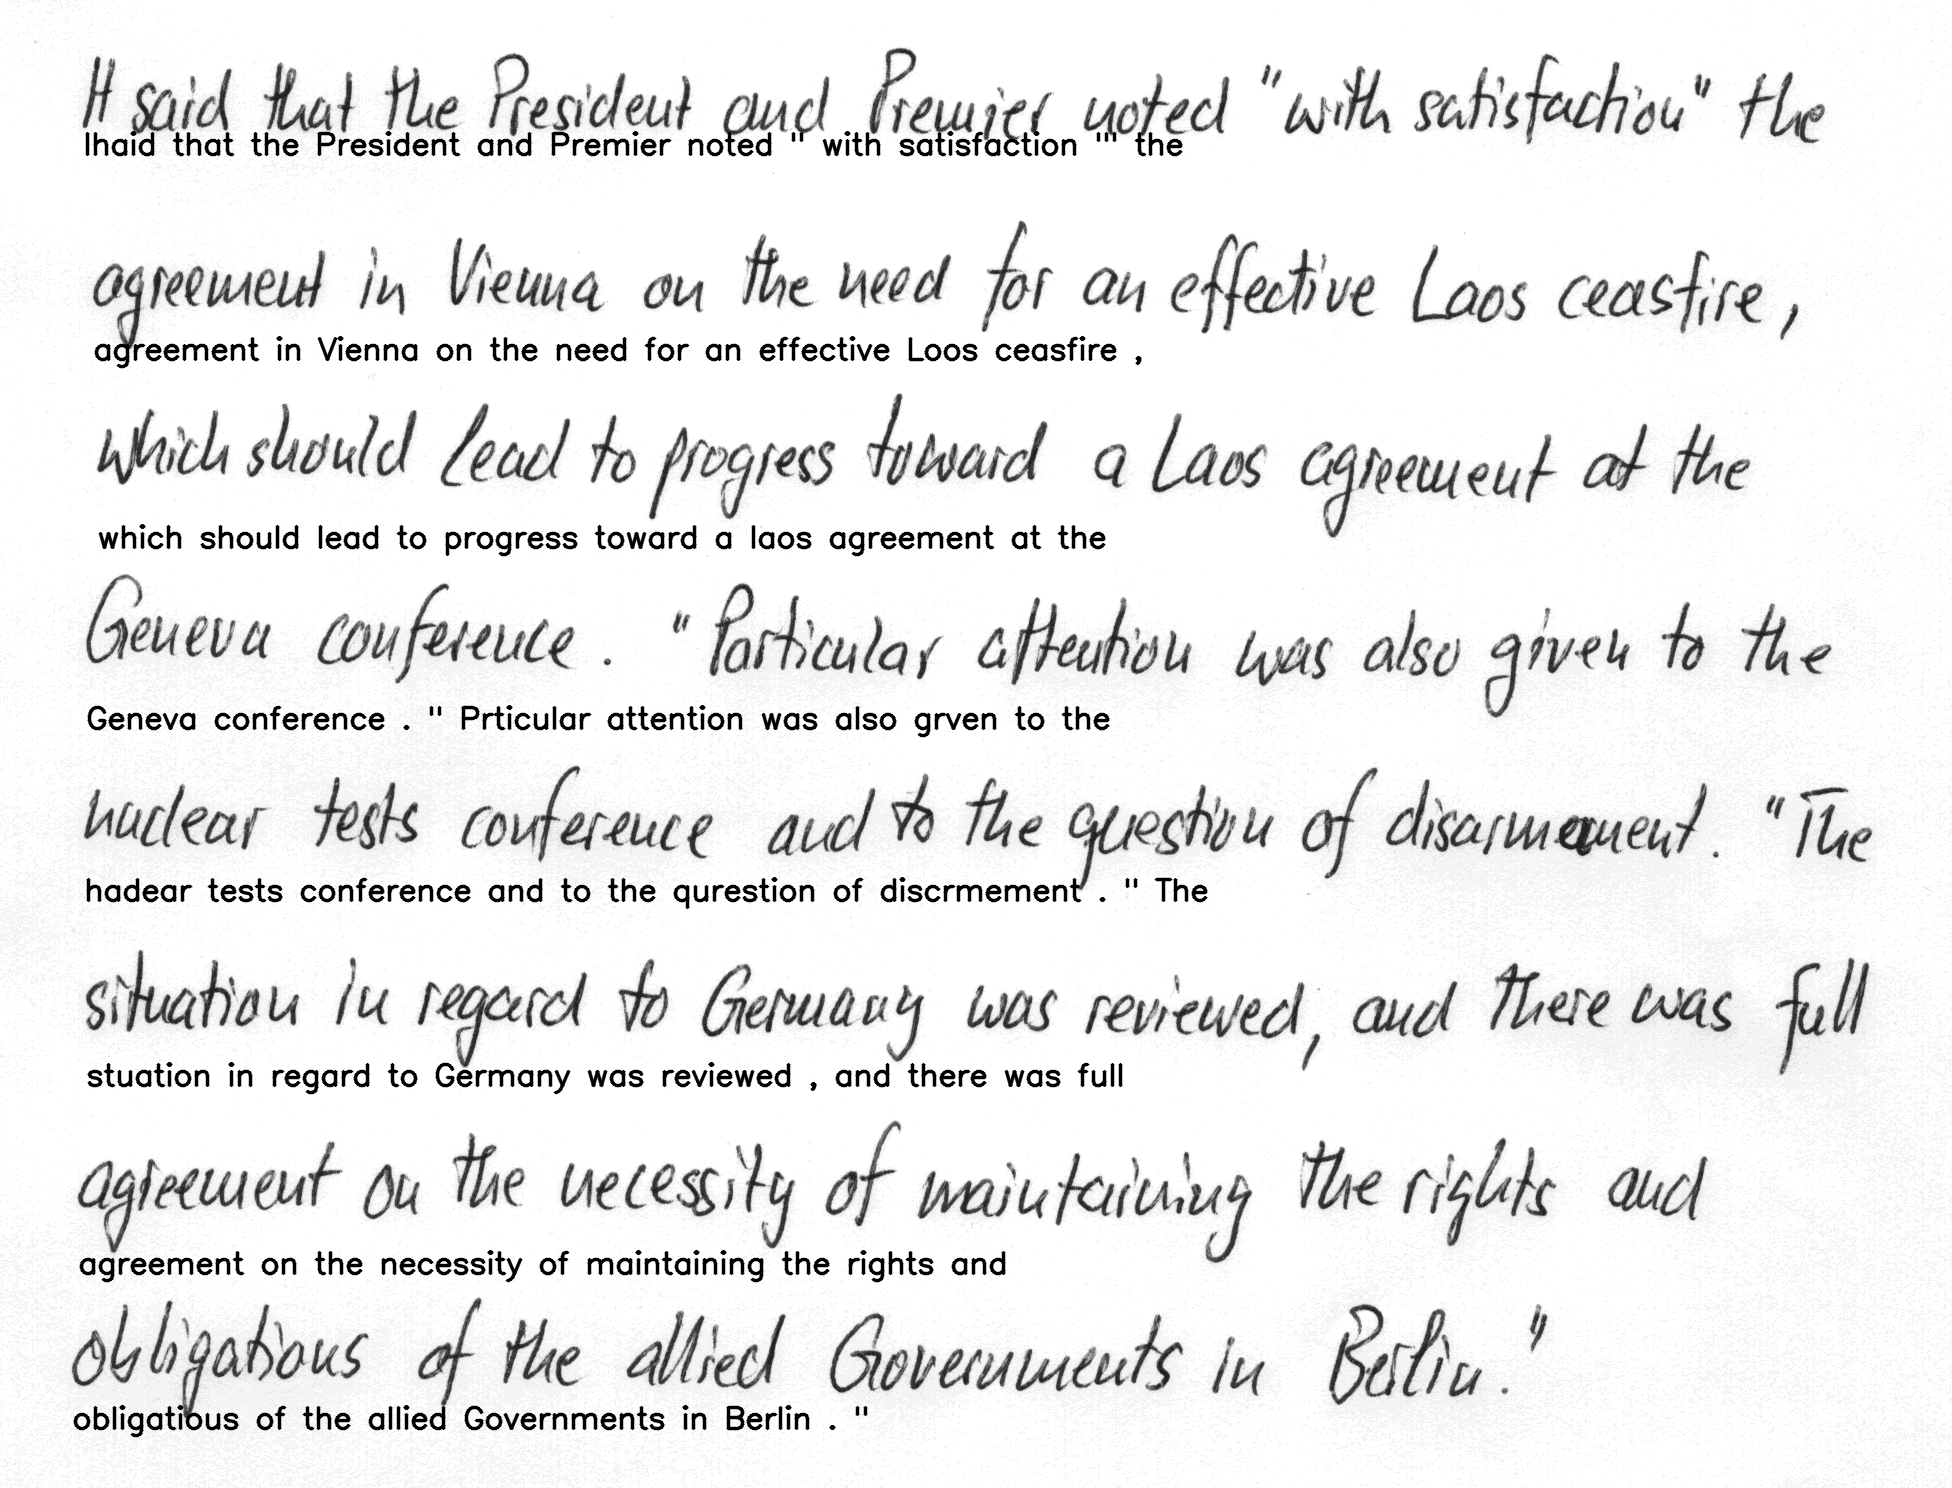 It said that the President and Premier noted "with satisfaction" the
lhaid that the President and Premier noted " with satisfaction "" the
agreement in Vienna on the need for an effective Laos ceasfire,
agreement in Vienna on the need for an effective Loos ceasfire ,
which should lead to progress toward a Laos agreement at the
which should lead to progress toward a laos agreement at the
Geneva conference. "Particular attention was also given to the
Geneva conference . " Prticular attention was also grven to the
nuclear tests conference and to the question of disarmement. "The
hadear tests conference and to the qurestion of discrmement . " The
situation in regard to Germany was reviewed, and there was full
stuation in regard to Germany was reviewed , and there was full
agreement on the necessity of maintaining the rights and
agreement on the necessity of maintaining the rights and
obligations of the allied Governments in Berlin."
obligatious of the allied Governments in Berlin . "